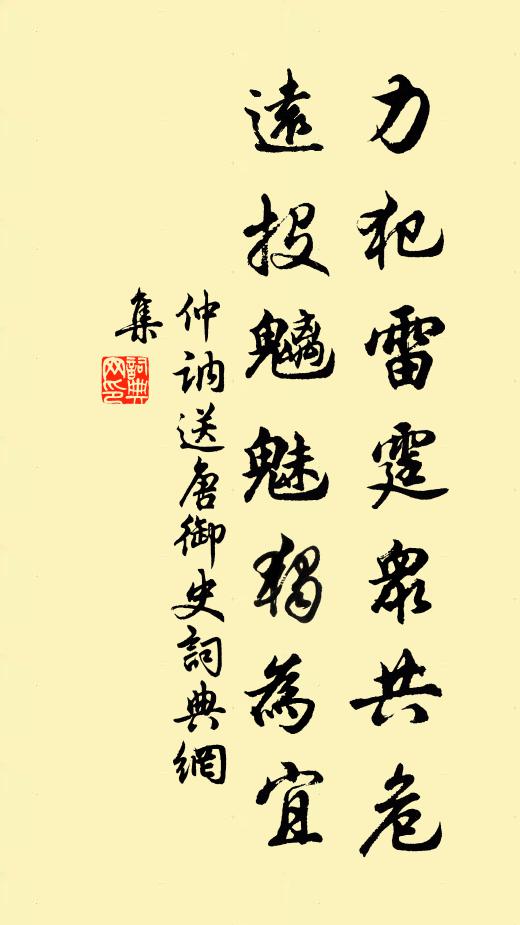 力犯雷霆眾共危
遠投魑魅獨為宜
仲訥送唐御史詞典網
集
詞典
网印